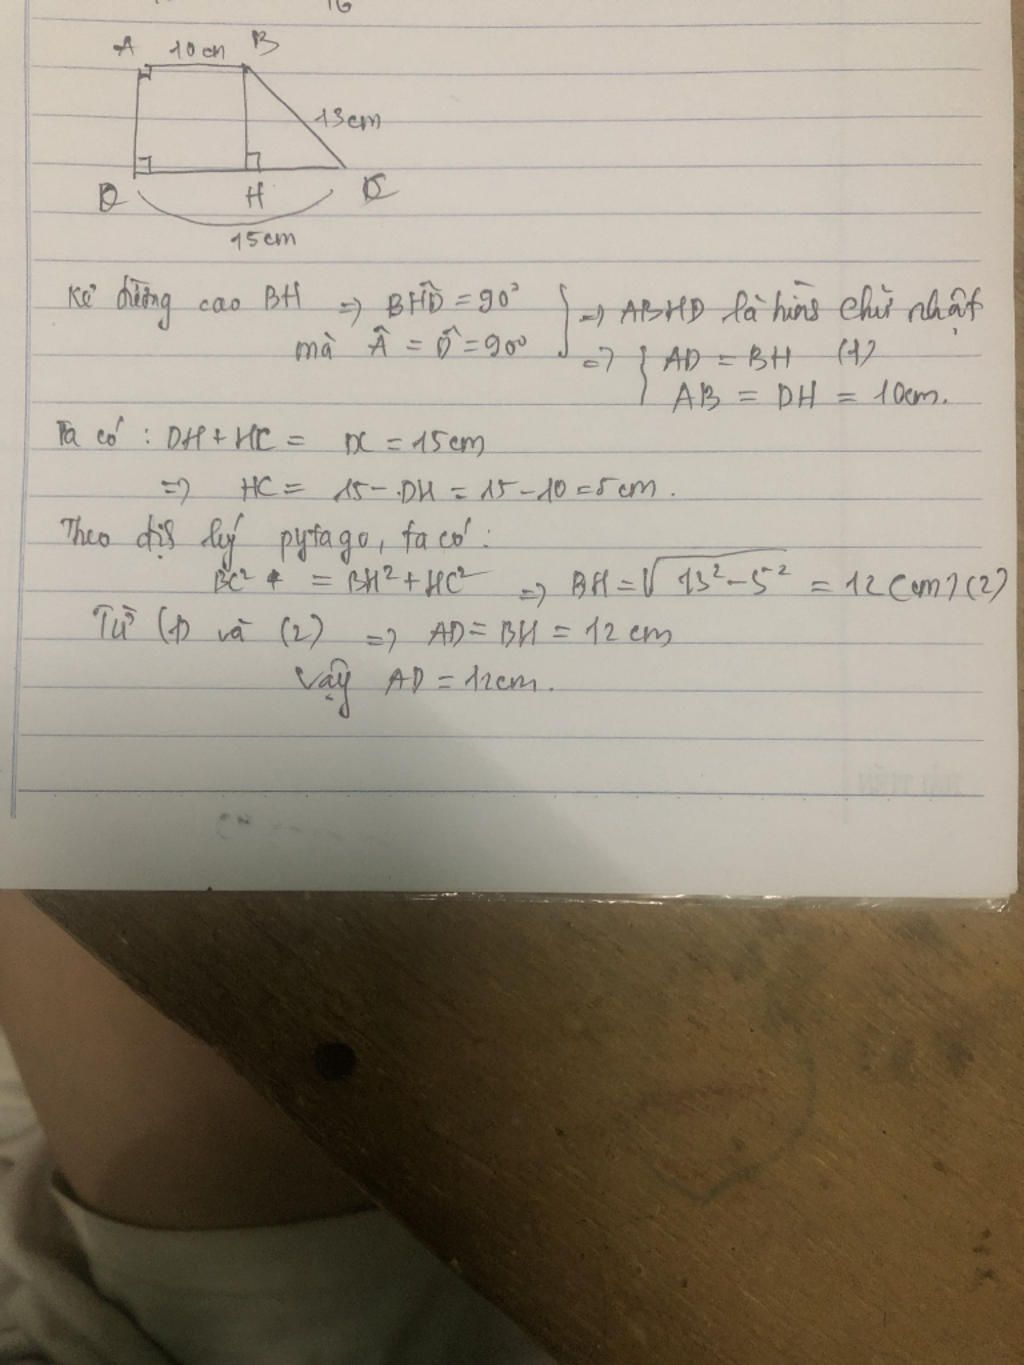 16
A 10cm B
13cm
D H C
15cm
Kẻ đường cao BH => BHD̂ = 90° } => ABHD là hình chữ nhật
mà Â = D̂ = 90° => { AD = BH (1)
AB = DH = 10cm.
Ta có : DH + HC = DC = 15cm
=> HC = 15 - DH = 15 - 10 = 5cm.
Theo định lý pytago, ta có :
BC² = BH² + HC² => BH = √13² - 5² = 12 (cm) (2)
Từ (1) và (2) => AD = BH = 12 cm
Vậy AD = 12cm.